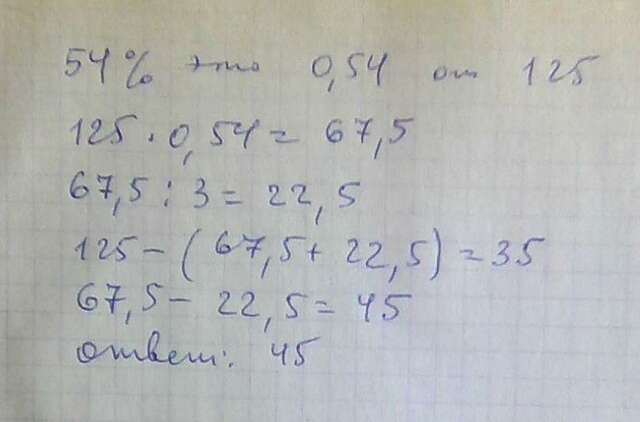 54% это 0,54 от 125
125 · 0,54 = 67,5
67,5 : 3 = 22,5
125 - ( 67,5 + 22,5 ) = 35
67,5 - 22,5 = 45
ответ: 45